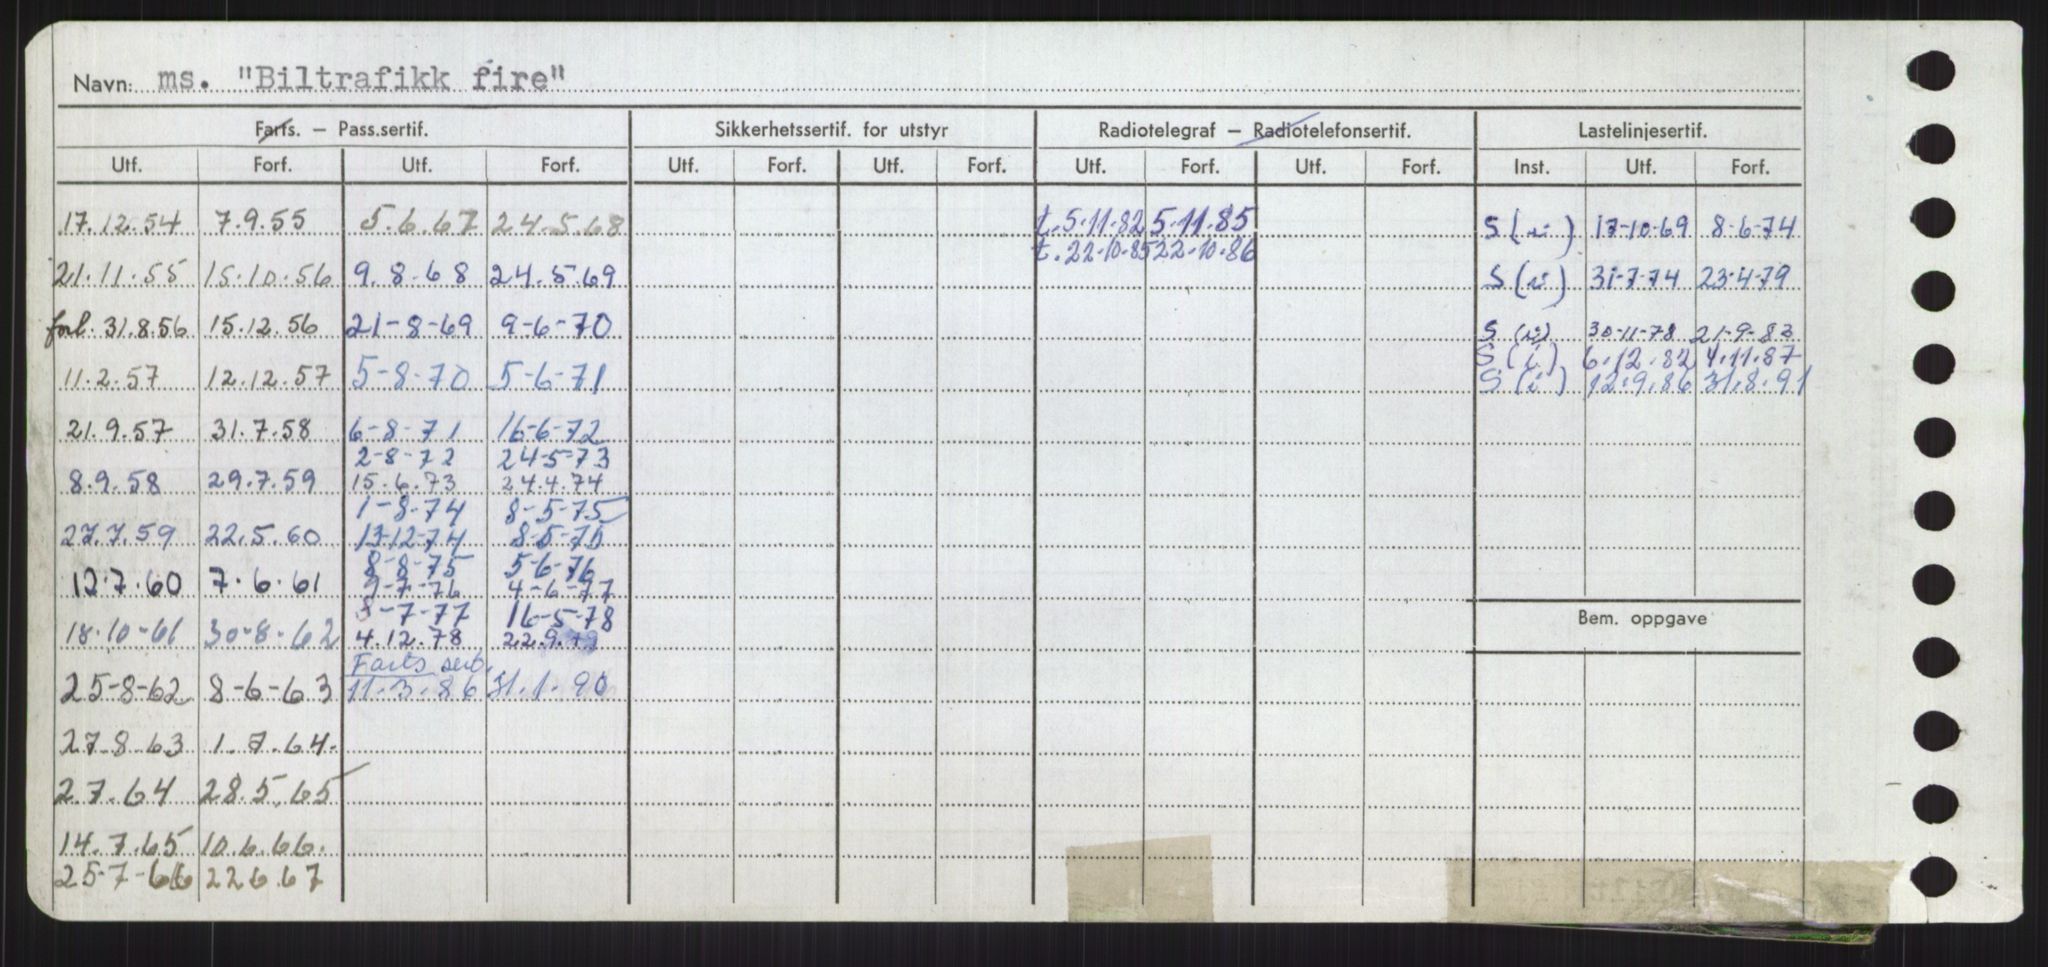 Navn: ms. "Biltrafikk fire"
Farts. – Pass.sertif. Sikkerhetssertif. for utstyr Radiotelegraf – Radiotelefonsertif. Lastelinjesertif.
Utf. Forf. Utf. Forf. Utf. Forf. Utf. Forf. Utf. Forf. Utf. Forf. Inst. Utf. Forf.
17.12.54 7.9.55 5.6.67 24.5.68 t. 5.11.82 5.11.85 S 17-10-69 8-6-74
t. 22.10.85 22.10.86
21.11.55 15.10.56 9.8.68 24.5.69 S 31-7-74 23-4-79
forl. 31.8.56 15.12.56 21-8-69 9-6-70 S 30-11-78 21-9-83
S (i) 6.12.82 4.11.87
11.2.57 12.12.57 5-8-70 5-6-71 S (i) 12.9.86 31.8.91
21.9.57 31.7.58 6-8-71 16-6-72
2-8-72 24-5-73
8.9.58 29.7.59 15.6.73 24.4.74
1-8-74 8-5-75
27.7.59 22.5.60 13-12-74 8-5-75
8-8-75 5-6-76
12.7.60 7.6.61 9-7-76 4-6-77
8-7-77 16-5-78
18-10-61 30-8-62 4.12.78 22.9.79
Bem. oppgave
Farts sert.
25-8-62 8-6-63 11.3.86 31.1.90
27.8.63 1.7.64.
2.7.64 28.5.65
14.7.65 10.6.66.
25-7-66 22.6.67